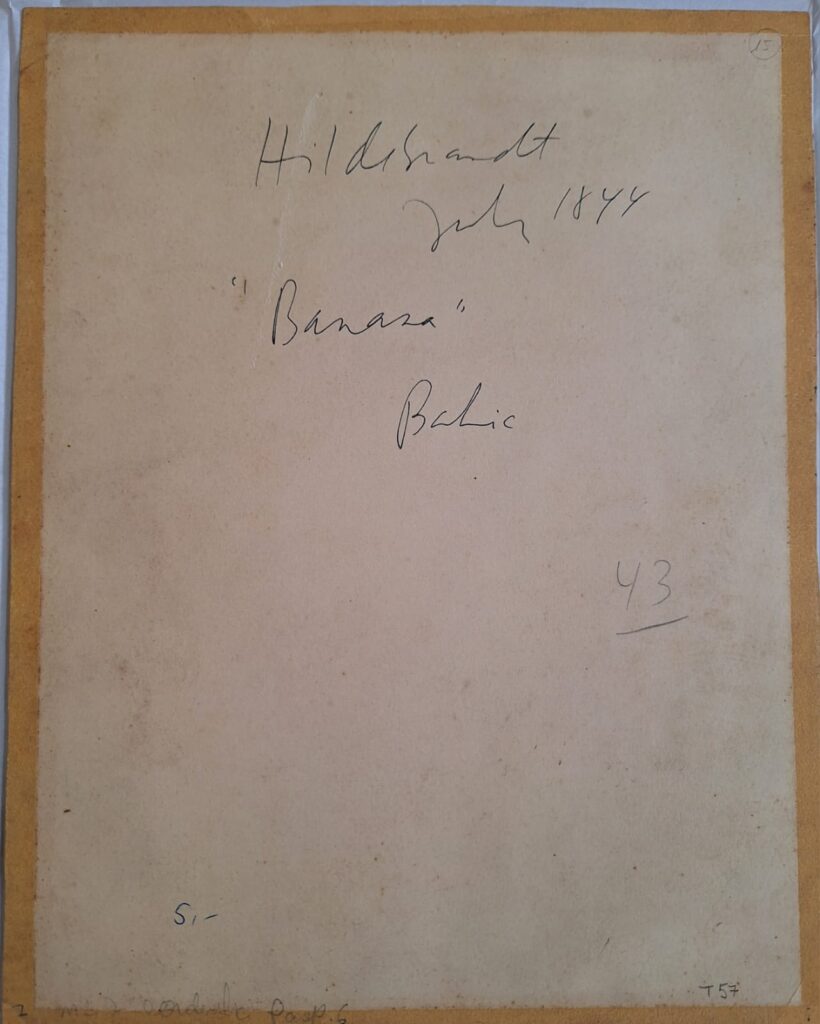 15
Hildebrandt
July 1844
"Banana"
Bahia
43
5,-
T57